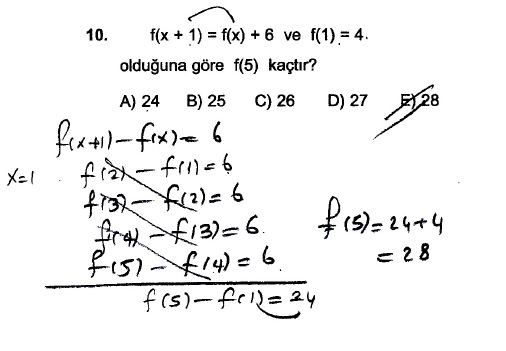 10. f(x + 1) = f(x) + 6 ve f(1) = 4.
olduğuna göre f(5) kaçtır?
A) 24 B) 25 C) 26 D) 27 E) 28
f(x+1) - f(x) = 6
x=1 f(2) - f(1) = 6
f(3) - f(2) = 6
f(4) - f(3) = 6
f(5) - f(4) = 6
f(5) - f(1) = 24
f(5) = 24+4
= 28